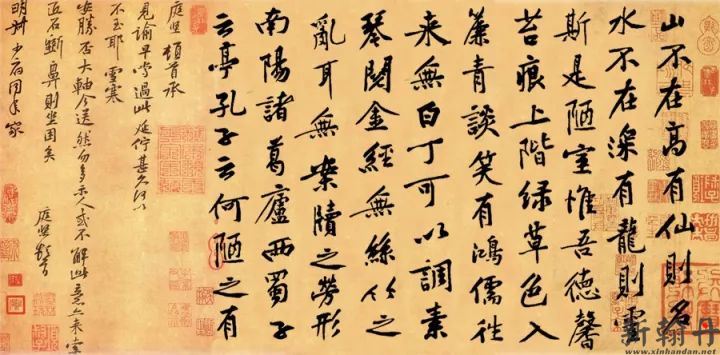 山不在高有仙則名
水不在深有龍則靈
斯是陋室惟吾德馨
苔痕上階緑草色入
簾青談笑有鴻儒往
来無白丁可以調素
琴閱金經無絲竹之
亂耳無案牘之勞形
南陽諸葛廬西蜀子
云亭孔子云何陋之有
庭堅頓首承
見諭早嘗過此延佇甚久何以
不至耶雪寒
安勝否大軸今送然勿多示人或不解此意亦來索
匠石斵鼻則坐困矣 庭堅頓首
明叔少府同年家
新翰丹
www.xinhandan.net